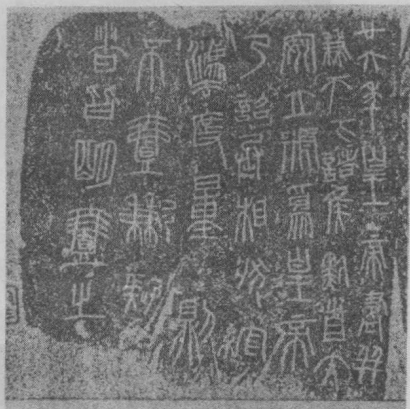 廿六年皇帝盡并
兼天下諸侯黔首大
安立號爲皇帝
乃詔丞相狀綰
灋度量則
不壹歉疑
者皆明壹之